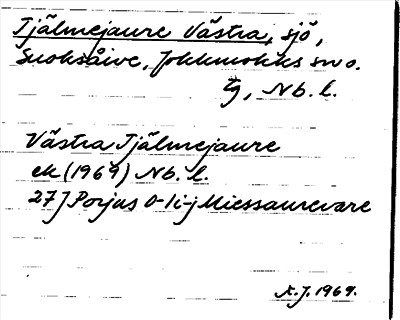 Tjälmejaure Västra, sjö,
Suoksåive, Jokkmokks sn o.
tg, Nb. l.
Västra Tjälmejaure
ek (1969) Nb. l.
27J Porjus 0-1i-j Miessaurevare
A.J. 1969.